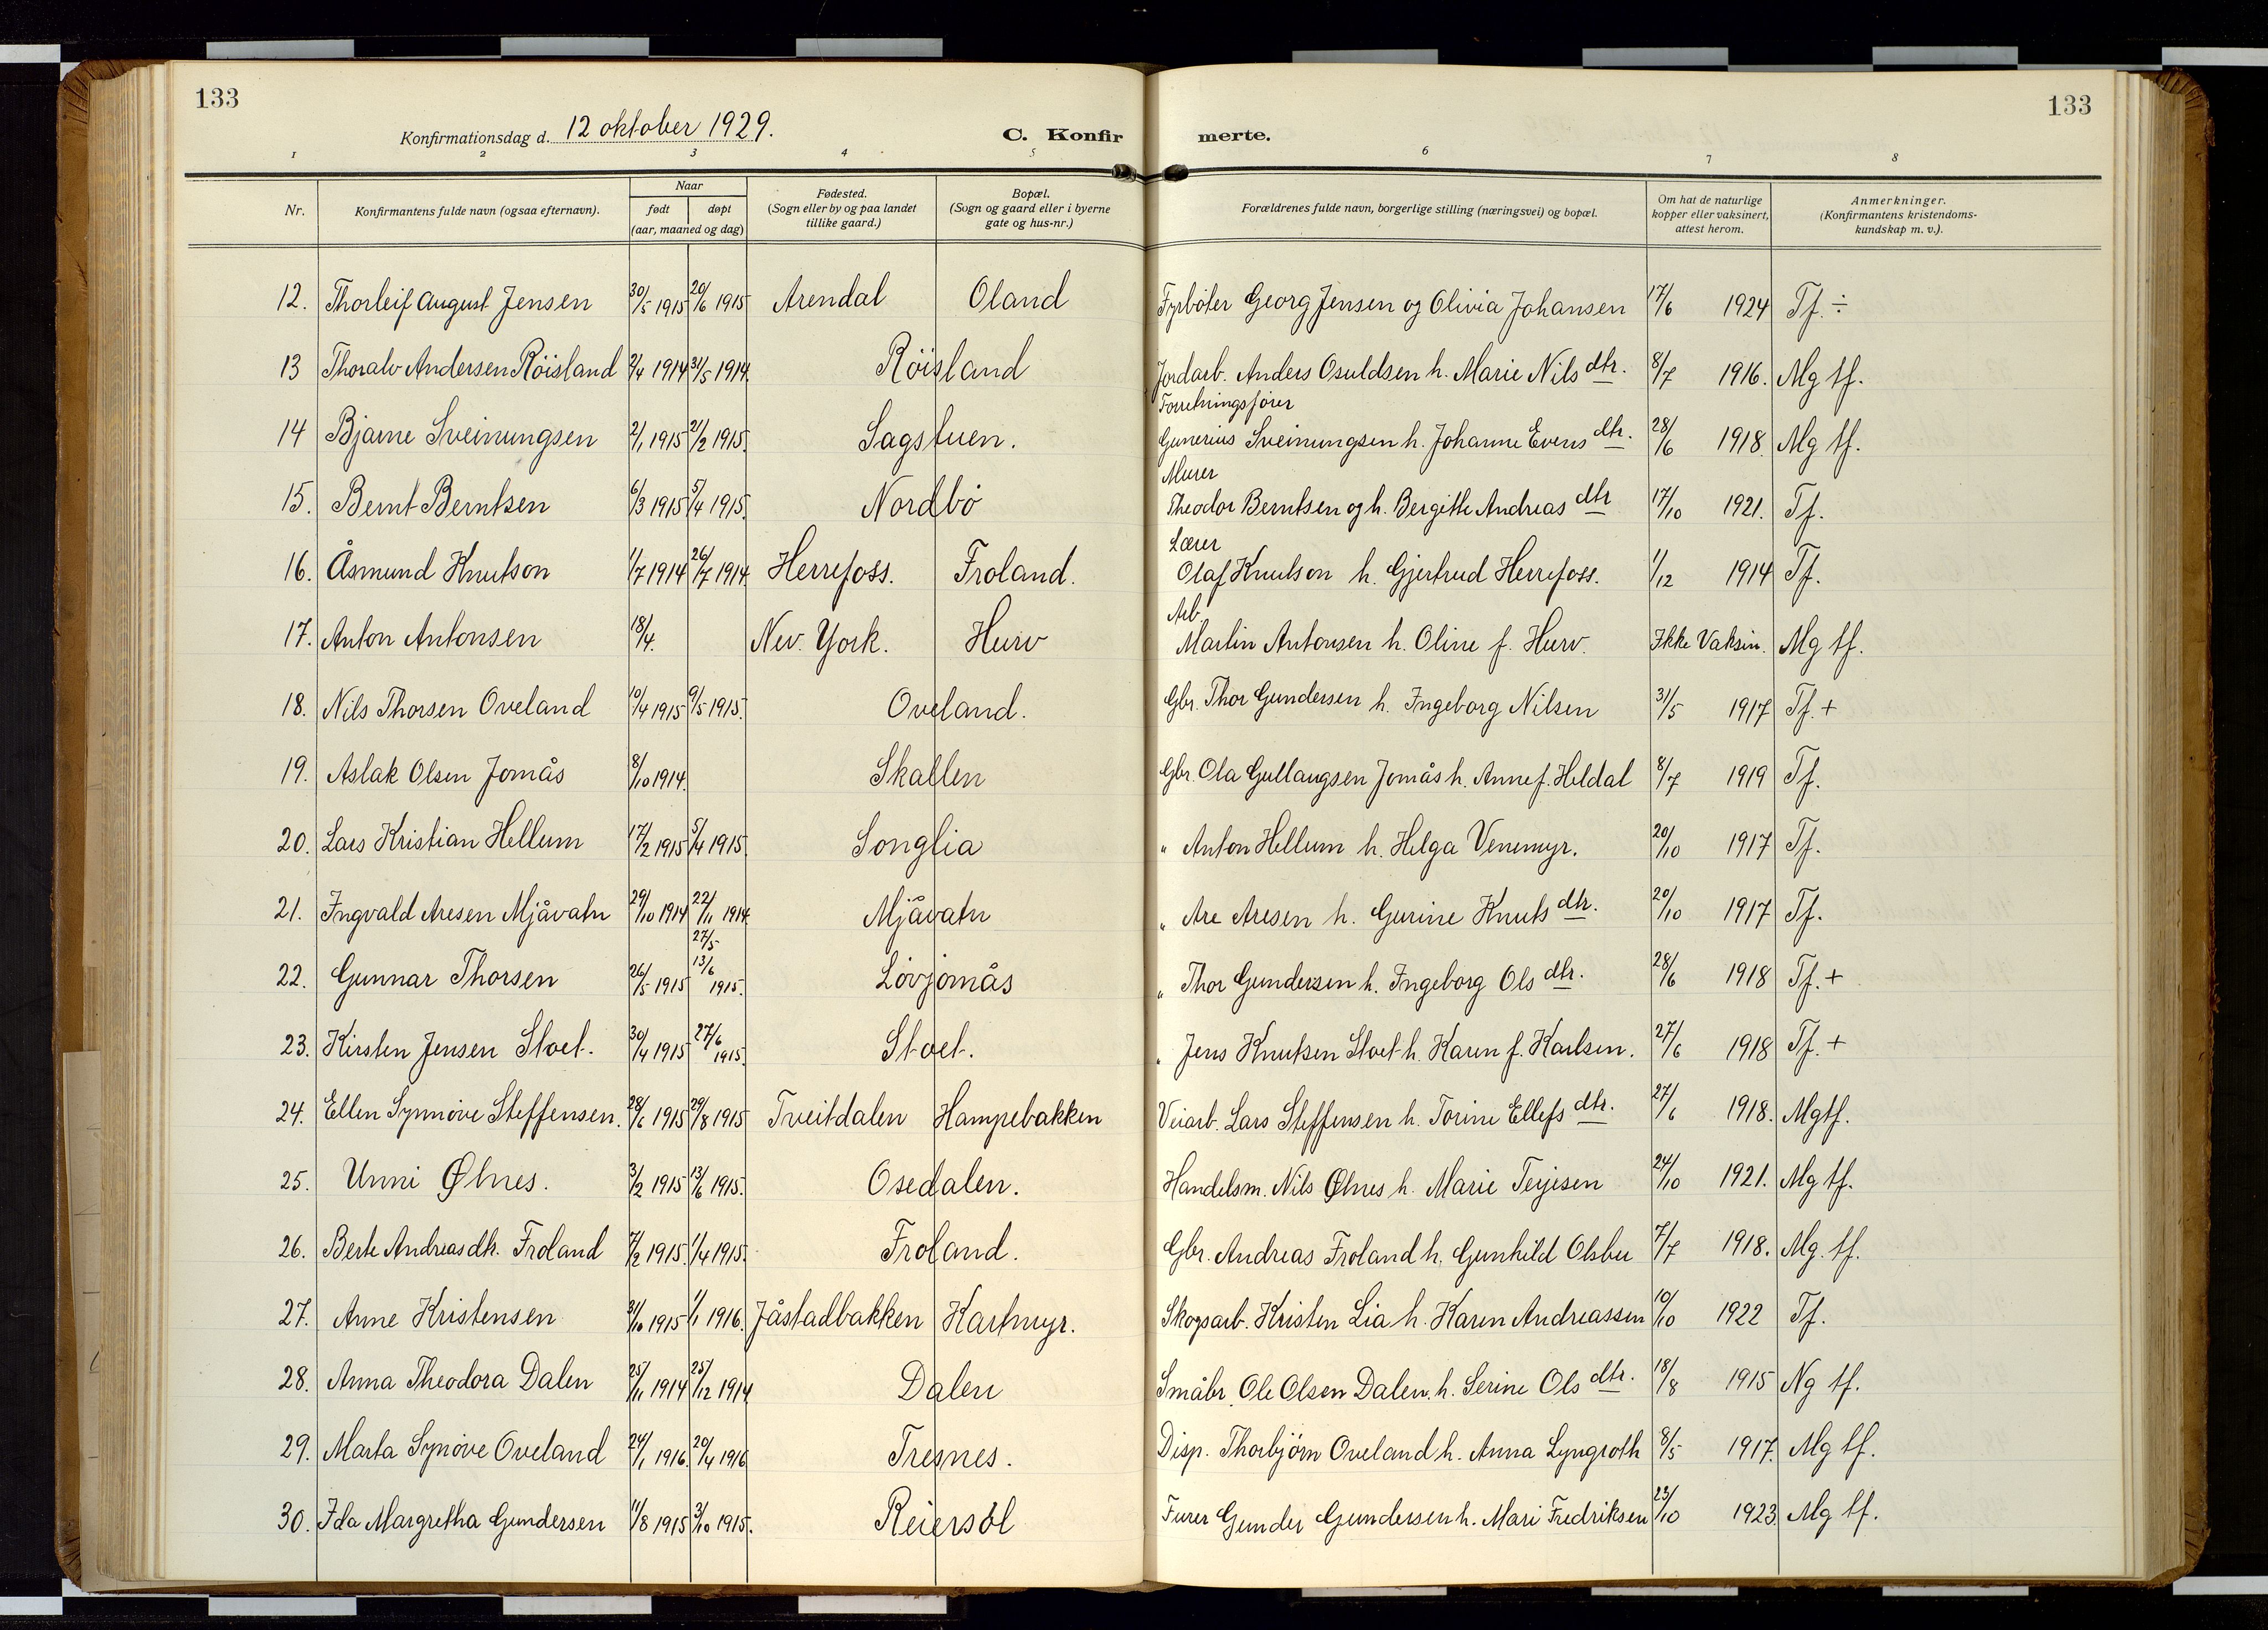 133
133
Konfirmationsdag d. 12 oktober 1929.
C. Konfir merte.
1 2 3 4 5 6 7 8
Nr. Konfirmantens fulde navn (ogsaa efternavn). Naar født døpt (aar, maaned og dag) Fødested. (Sogn eller by og paa landet tillike gaard.) Bopæl. (Sogn og gaard eller i byerne gate og hus-nr.) Forældrenes fulde navn, borgerlige stilling (næringsvei) og bopæl. Om hat de naturlige kopper eller vaksinert, attest herom. Anmerkninger. (Konfirmantens kristendoms-kundskap m. v.).
12. Thorleif August Jensen 30/5 1915 20/6 1915 Arendal Oland Fyrbøter Georg Jensen og Olivia Johansen 17/6 1924 Tf. ÷
13 Thoralv Andersen Röisland 2/4 1914 31/5 1914. Röisland Jordarb. Anders Osuldsen h. Marie Nils dtr. 8/7 1916. Mg tf.
Forretningsfører
14 Bjarne Sveinungsen 2/1 1915 21/2 1915. Sagstuen. Gunerius Sveinungsen h. Johanne Evens dtr. 28/6 1918. Mg tf.
Murer
15. Bernt Berntsen 6/3 1915 5/4 1915. Nordbö Theodor Berntsen og h. Bergitte Andreas dtr 17/10 1921. Tf.
Lærer
16. Åsmund Knutson 1/7 1914 26/7 1914. Herrefoss. Froland. Olaf Knutson h. Gjertrud Herrefoss. 1/12 1914 Tf.
Arb.
17. Anton Antonsen 18/4. Nev. York. Hurv Martin Antonsen h. Oline f. Hurv. Ikke Vaksin. Mg tf.
18. Nils Thorsen Oveland 10/4 1915 9/5 1915. Oveland. Gbr. Thor Gundersen h. Ingeborg Nilsen 31/5 1917 Tf. +
19. Aslak Olsen Jomås 8/10 1914. Skallen Gbr. Ola Gullaugsen Jomås h. Anne f. Heldal 8/7 1919 Tf.
20. Lars Kristian Hellum 17/2 1915 5/4 1915. Songlia " Anton Hellum h. Helga Venemyr. 20/10 1917 Tf.
21. Ingvald Aresen Mjåvatn 29/10 1914 22/11 1914. Mjåvatn " Are Aresen h. Gurine Knuts dtr. 20/10 1917 Tf.
27/5
22. Gunnar Thorsen 26/5 1915 13/6 1915. Lövjomås " Thor Gundersen h. Ingeborg Ols dtr. 28/6 1918 Tf. +
23. Kirsten Jensen Stoet. 30/4 1915 27/6 1915. Stoet. " Jens Knutsen Stoet h. Karen f. Karlsen. 27/6 1918 Tf. +
24. Ellen Synnöve Steffensen. 28/6 1915 29/8 1915 Tveitdalen Hampebakken Veiarb. Lars Steffensen h. Torine Ellefs dtr. 27/6 1918. Mg tf.
25. Unni Ølnes. 3/2 1915 13/6 1915. Osedalen. Handelsm. Nils Ølnes h. Marie Terjesen 24/10 1921. Mg tf.
26. Berte Andreasdtr. Froland 7/2 1915. 1/4 1915. Froland. Gbr. Andreas Froland h. Gunhild Olsbu 7/7 1918. Mg. tf.
27. Anne Kristensen 31/10 1915 1/1 1916. Jåstadbakken Hartmyr. Skogsarb. Kristen Lia h. Karen Andreassen 10/10 1922 Tf.
28. Anna Theodora Dalen 25/11 1914 25/12 1914 Dalen Småbr. Ole Olsen Dalen. h. Serine Ols dtr. 18/8 1915 Ng tf.
29. Marta Synöve Oveland 24/1 1916. 20/4 1916 Tresnes. Disp. Thorbjörn Oveland h. Anna Lyngroth 8/5 1917. Mg tf.
30. Ida Margretha Gundersen 11/8 1915 3/10 1915. Reiersöl Furer Gunder Gundersen h. Mari Fredriksen 23/10 1923. Mg tf.